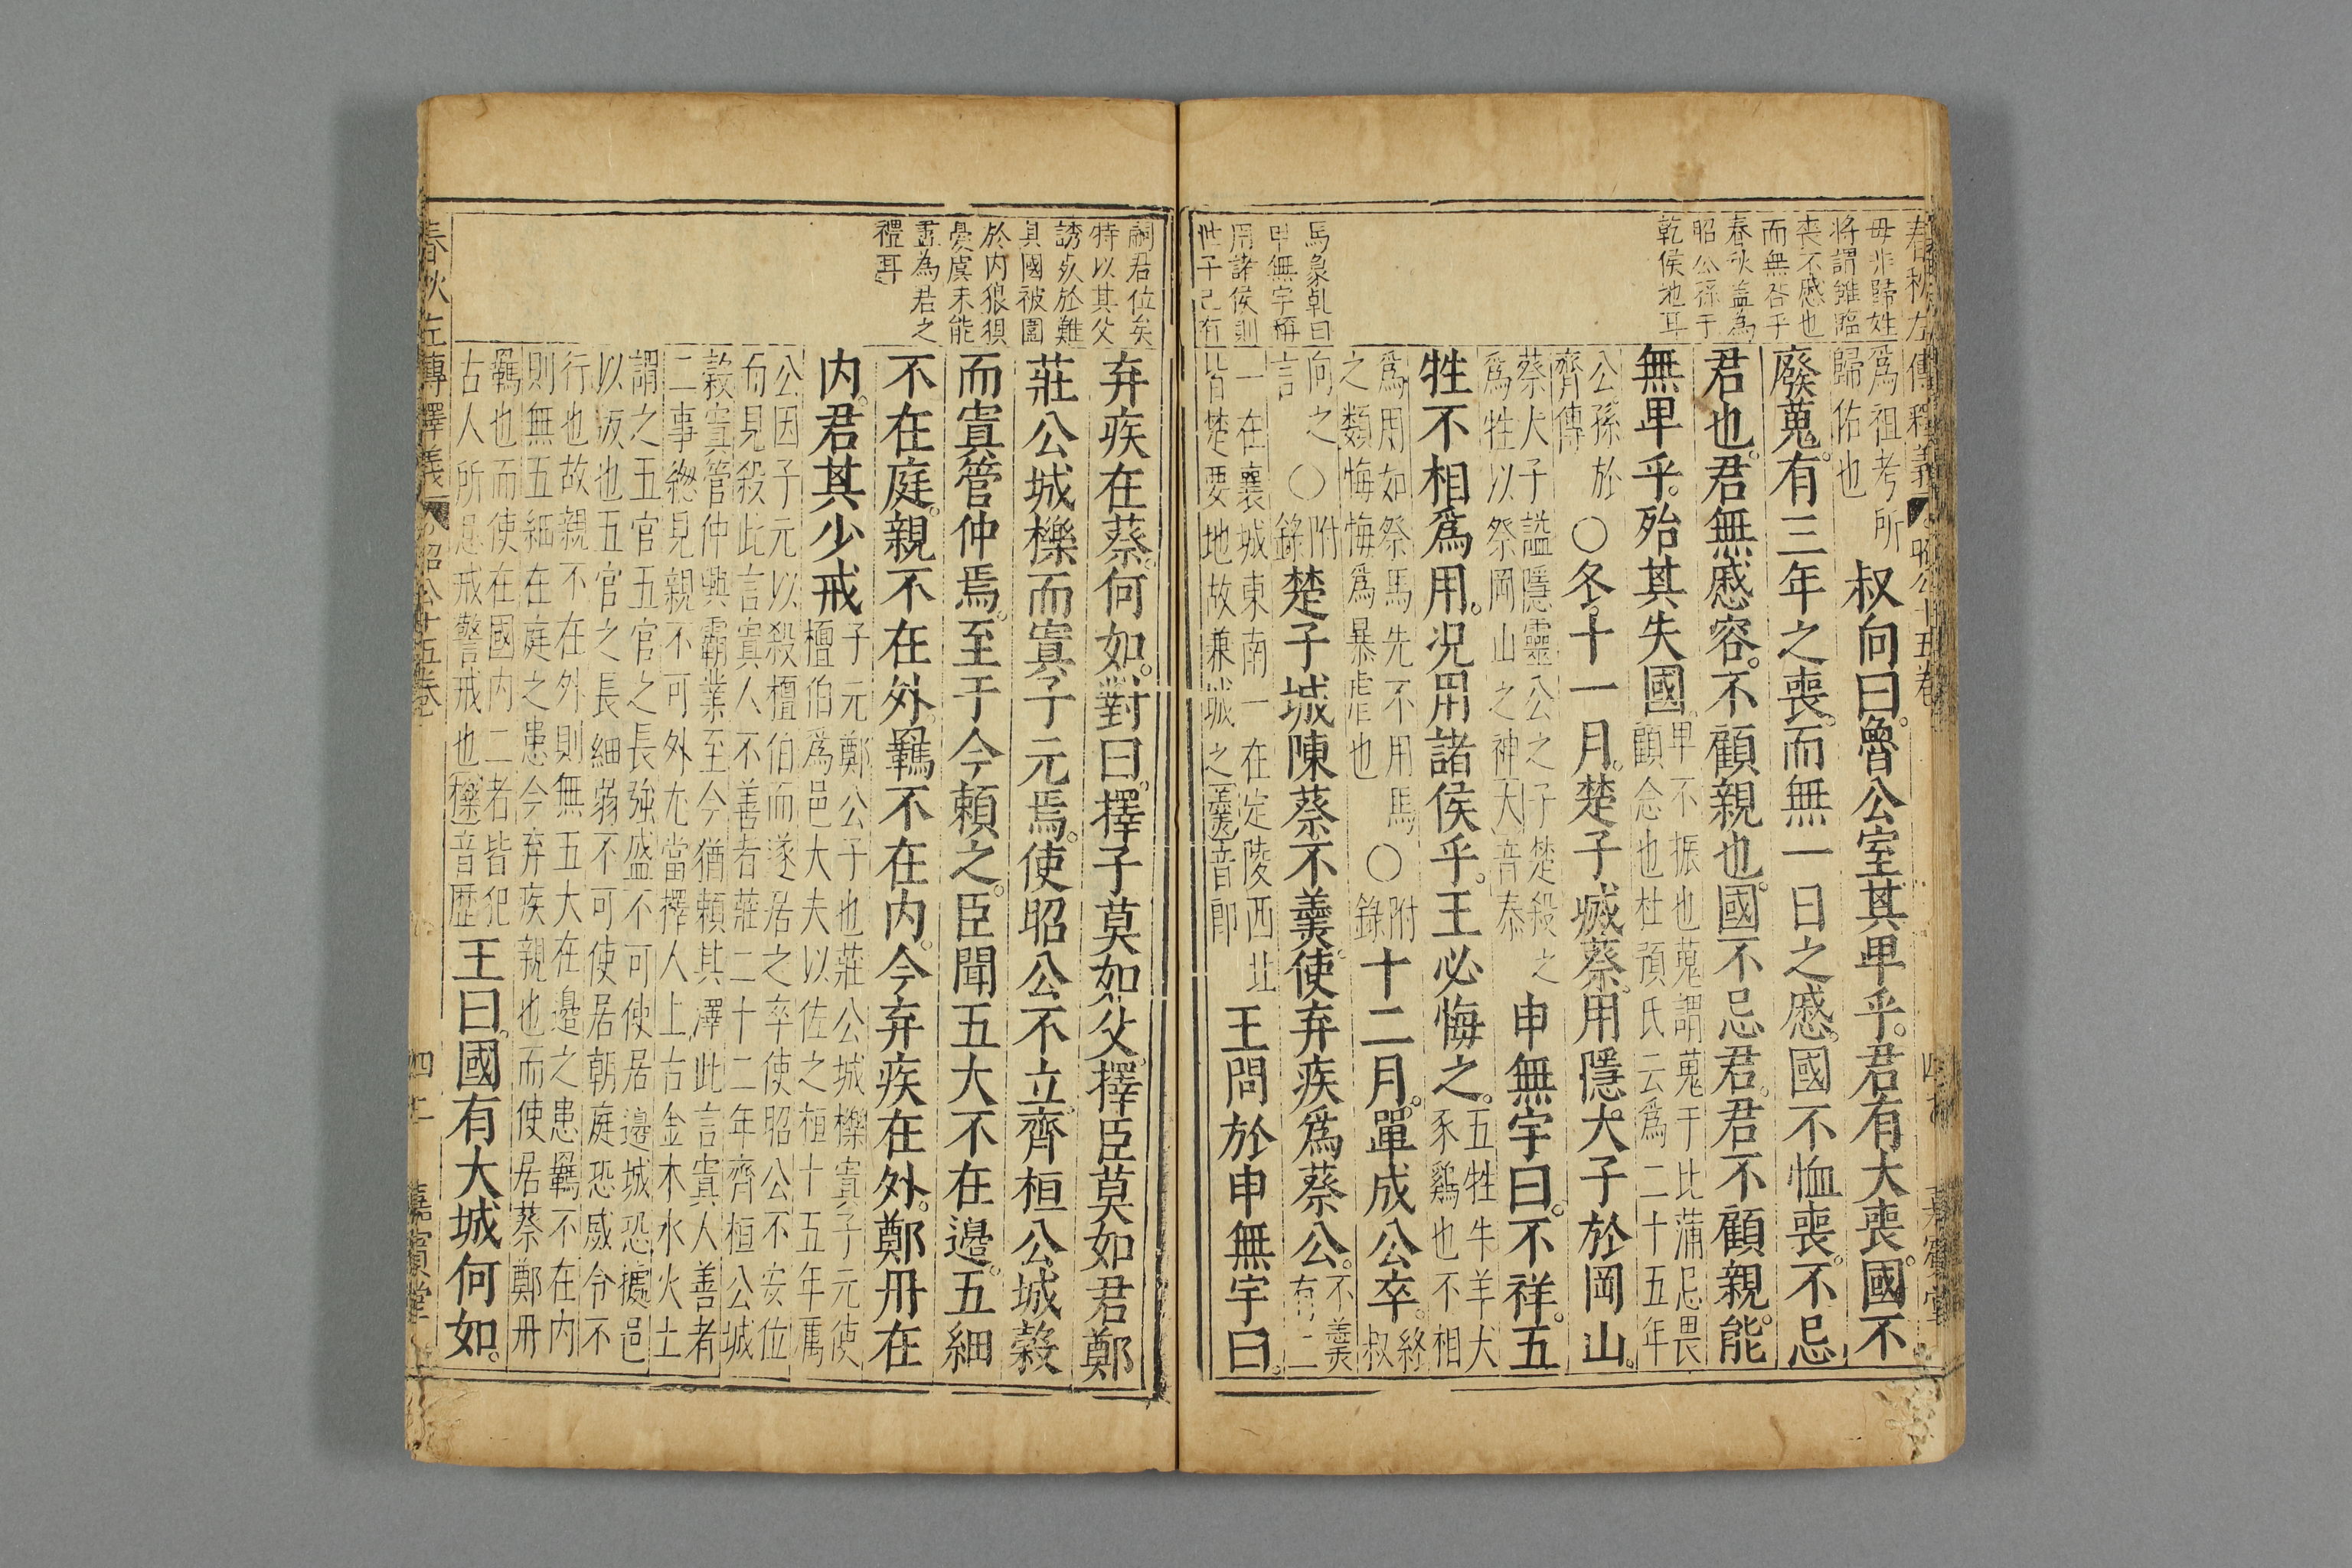 春秋左傳釋義
昭公十五卷
嘉賓堂
毋非歸姓
將謂雖臨
喪不慼也
而無咎乎
春秋蓋為
昭公孫于
乾侯地耳
馬象乹曰
申無宇稱
用諸侯訓
性子已有
爲祖考所
歸佑也
叔向曰。魯公室其卑乎。君有大喪。國不
廢蒐。有三年之喪。而無一日之慼。國不恤喪。不忌
君也。君無慼容。不顧親也。國不忌君。君不顧親。能
無卑乎。殆其失國。
卑不振也蒐謂蒐于比蒲忌畏
顧念也杜預氏云爲二十五年
公孫於
齊傳
○冬。十一月。楚子滅蔡。用隱大子於岡山。
蔡大子謚隱靈公之子楚殺之
爲牲以祭岡山之神大音泰
申無宇曰。不祥。五
牲不相爲用。况用諸侯乎。王必悔之。
五牲牛羊犬
豕鷄也不相
爲用如祭馬先不用馬
之類悔悔爲暴虐也
○附錄
十二月。單成公卒。
終
叔
向之
言
○附錄
楚子城陳蔡不羹。使弃疾爲蔡公。
不羹
有二
一在襄城東南一在定陵西北
皆楚要地故兼城之羹音郎
王問於申無宇曰。
嗣君位矣
特以其父
誘殁於難
其國被圍
於内狼狽
憂虞未能
盡為君之
禮耳
弃疾在蔡。何如。對曰。擇子莫如父。擇臣莫如君。鄭
莊公城櫟而寘子元焉。使昭公不立。齊桓公城穀
而寘管仲焉。至于今賴之。臣聞五大不在邉。五細
不在庭。親不在外。羈不在内。今弃疾在外。鄭丹在
内。君其少戒
子元鄭公子也莊公城櫟寘子元使
檀伯爲邑大夫以佐之桓十五年厲
公因子元以殺檀伯而遂居之卒使昭公不安位
而見殺此言寘人不善者莊二十二年齊桓公城
穀寘管仲興霸業至今猶賴其澤此言寘人善者
二事緫見親不可外尢當擇人上古金木水火土
謂之五官五官之長強盛不可使居邉城恐據邑
以叛也五官之長細弱不可使居朝庭恐威令不
行也故親不在外則無五大在邉之患羈不在内
則無五細在庭之患今弃疾親也而使居蔡鄭丹
羈也而使在國内二者皆犯
古人所忌戒警戒也櫟音歷
王曰。國有大城何如。
春秋左傳釋義
昭公十五卷
嘉賓堂